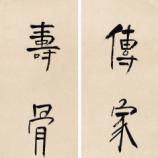 傳家
壽骨